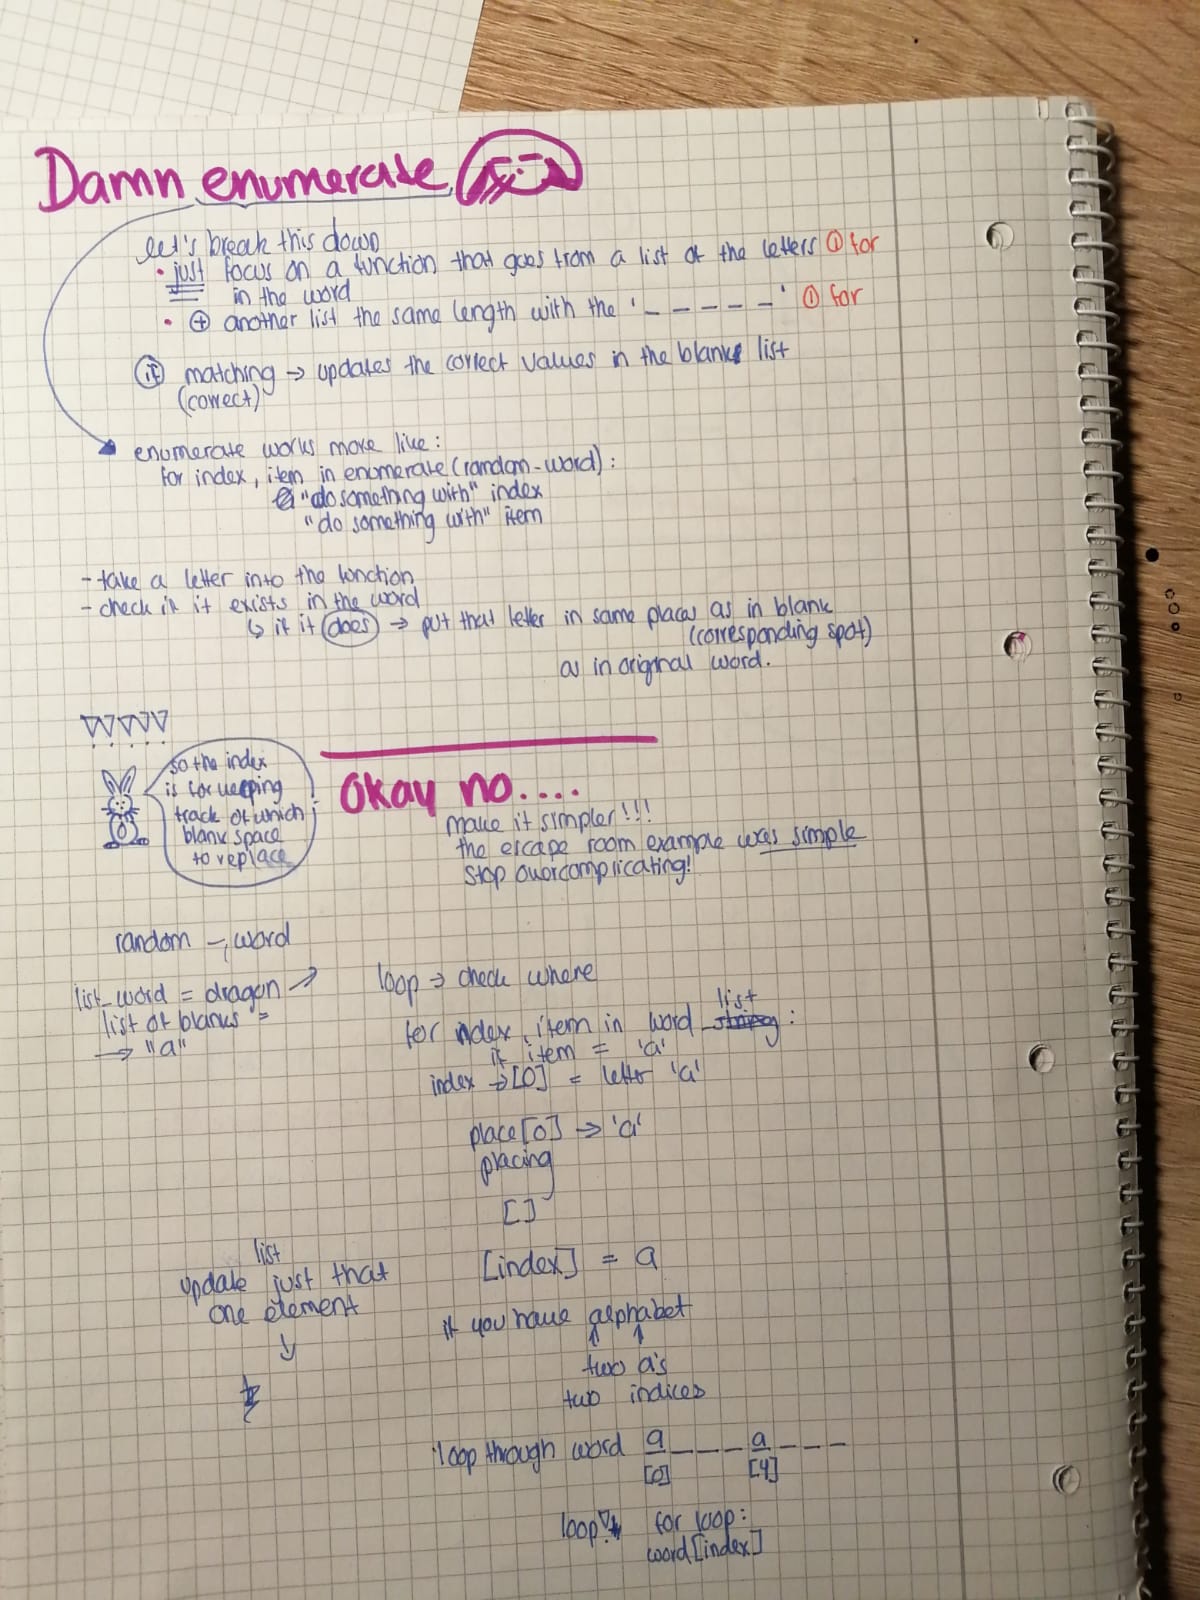 Damn enumerate
let's break this down
• just focus on a function that goes from a list of the letters ① for
in the word
• ⊕ another list the same length with the '_ _ _ _ _' ① for
if matching → updates the correct values in the blanks list
(correct)
enumerate works more like:
for index, item in enumerate(random-word):
"do something with" index
"do something with" item
- take a letter into the function
- check if it exists in the word
↳ if it does → put that letter in same place as in blank
(corresponding spot)
as in original word.
so the index
is for keeping
track of which
blank space
to replace
Okay no....
make it simpler!!!
the escape room example was simple
stop overcomplicating!
random _ word
list_word = dragon
list of blanks =
→ "a"
loop → check where
list
for index, item in word string:
if item = 'a'
index → [0] = letter 'a'
place[0] → 'a'
placing
[ ]
list
update just that
one element
[index] = a
if you have alphabet
two a's
two indices
loop through word a _ _ _ a _ _ _
[0] [4]
loop for loop:
word[index]